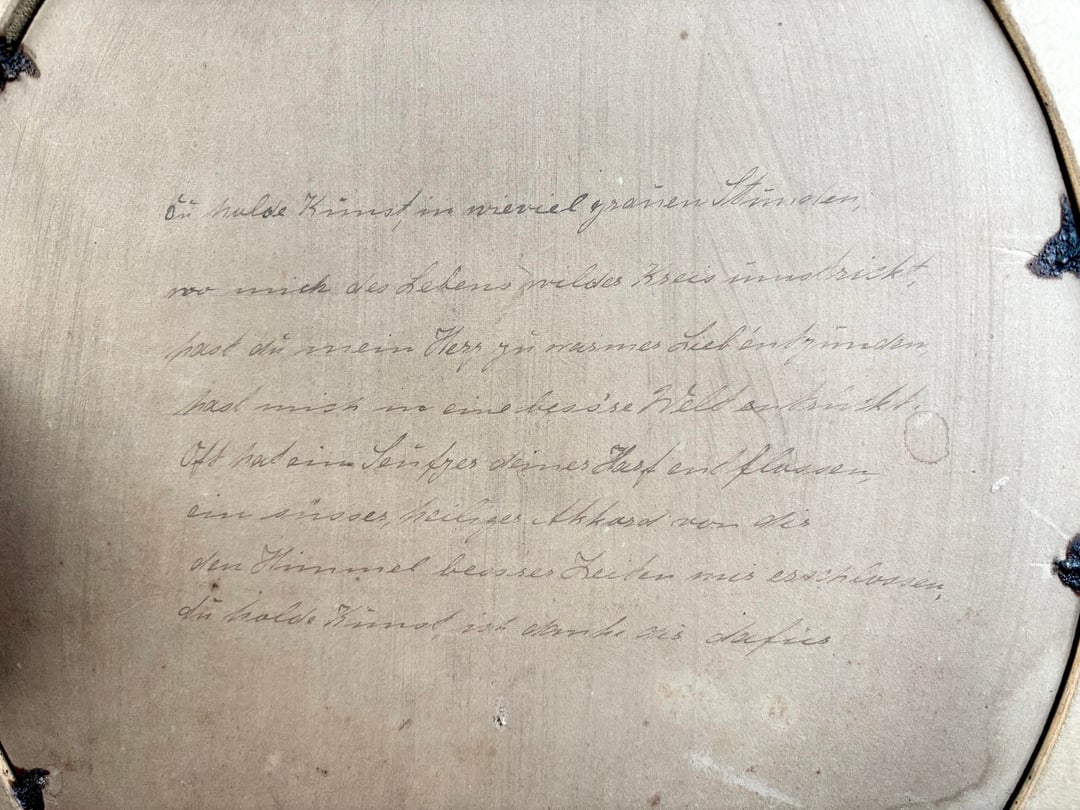 du holde Kunst, in wieviel grauen Stunden,
wo mich des Lebens wilder Kreis umstrickt,
hast du mein Herz zu warmer Lieb entzunden,
hast mich in eine bess're Welt entrückt.
Oft hat ein Seufzer deiner Harf entflossen,
ein süsser, heiliger Akkord von dir
den Himmel bess'rer Zeiten mir erschlossen,
du holde Kunst, ich danke dir dafür